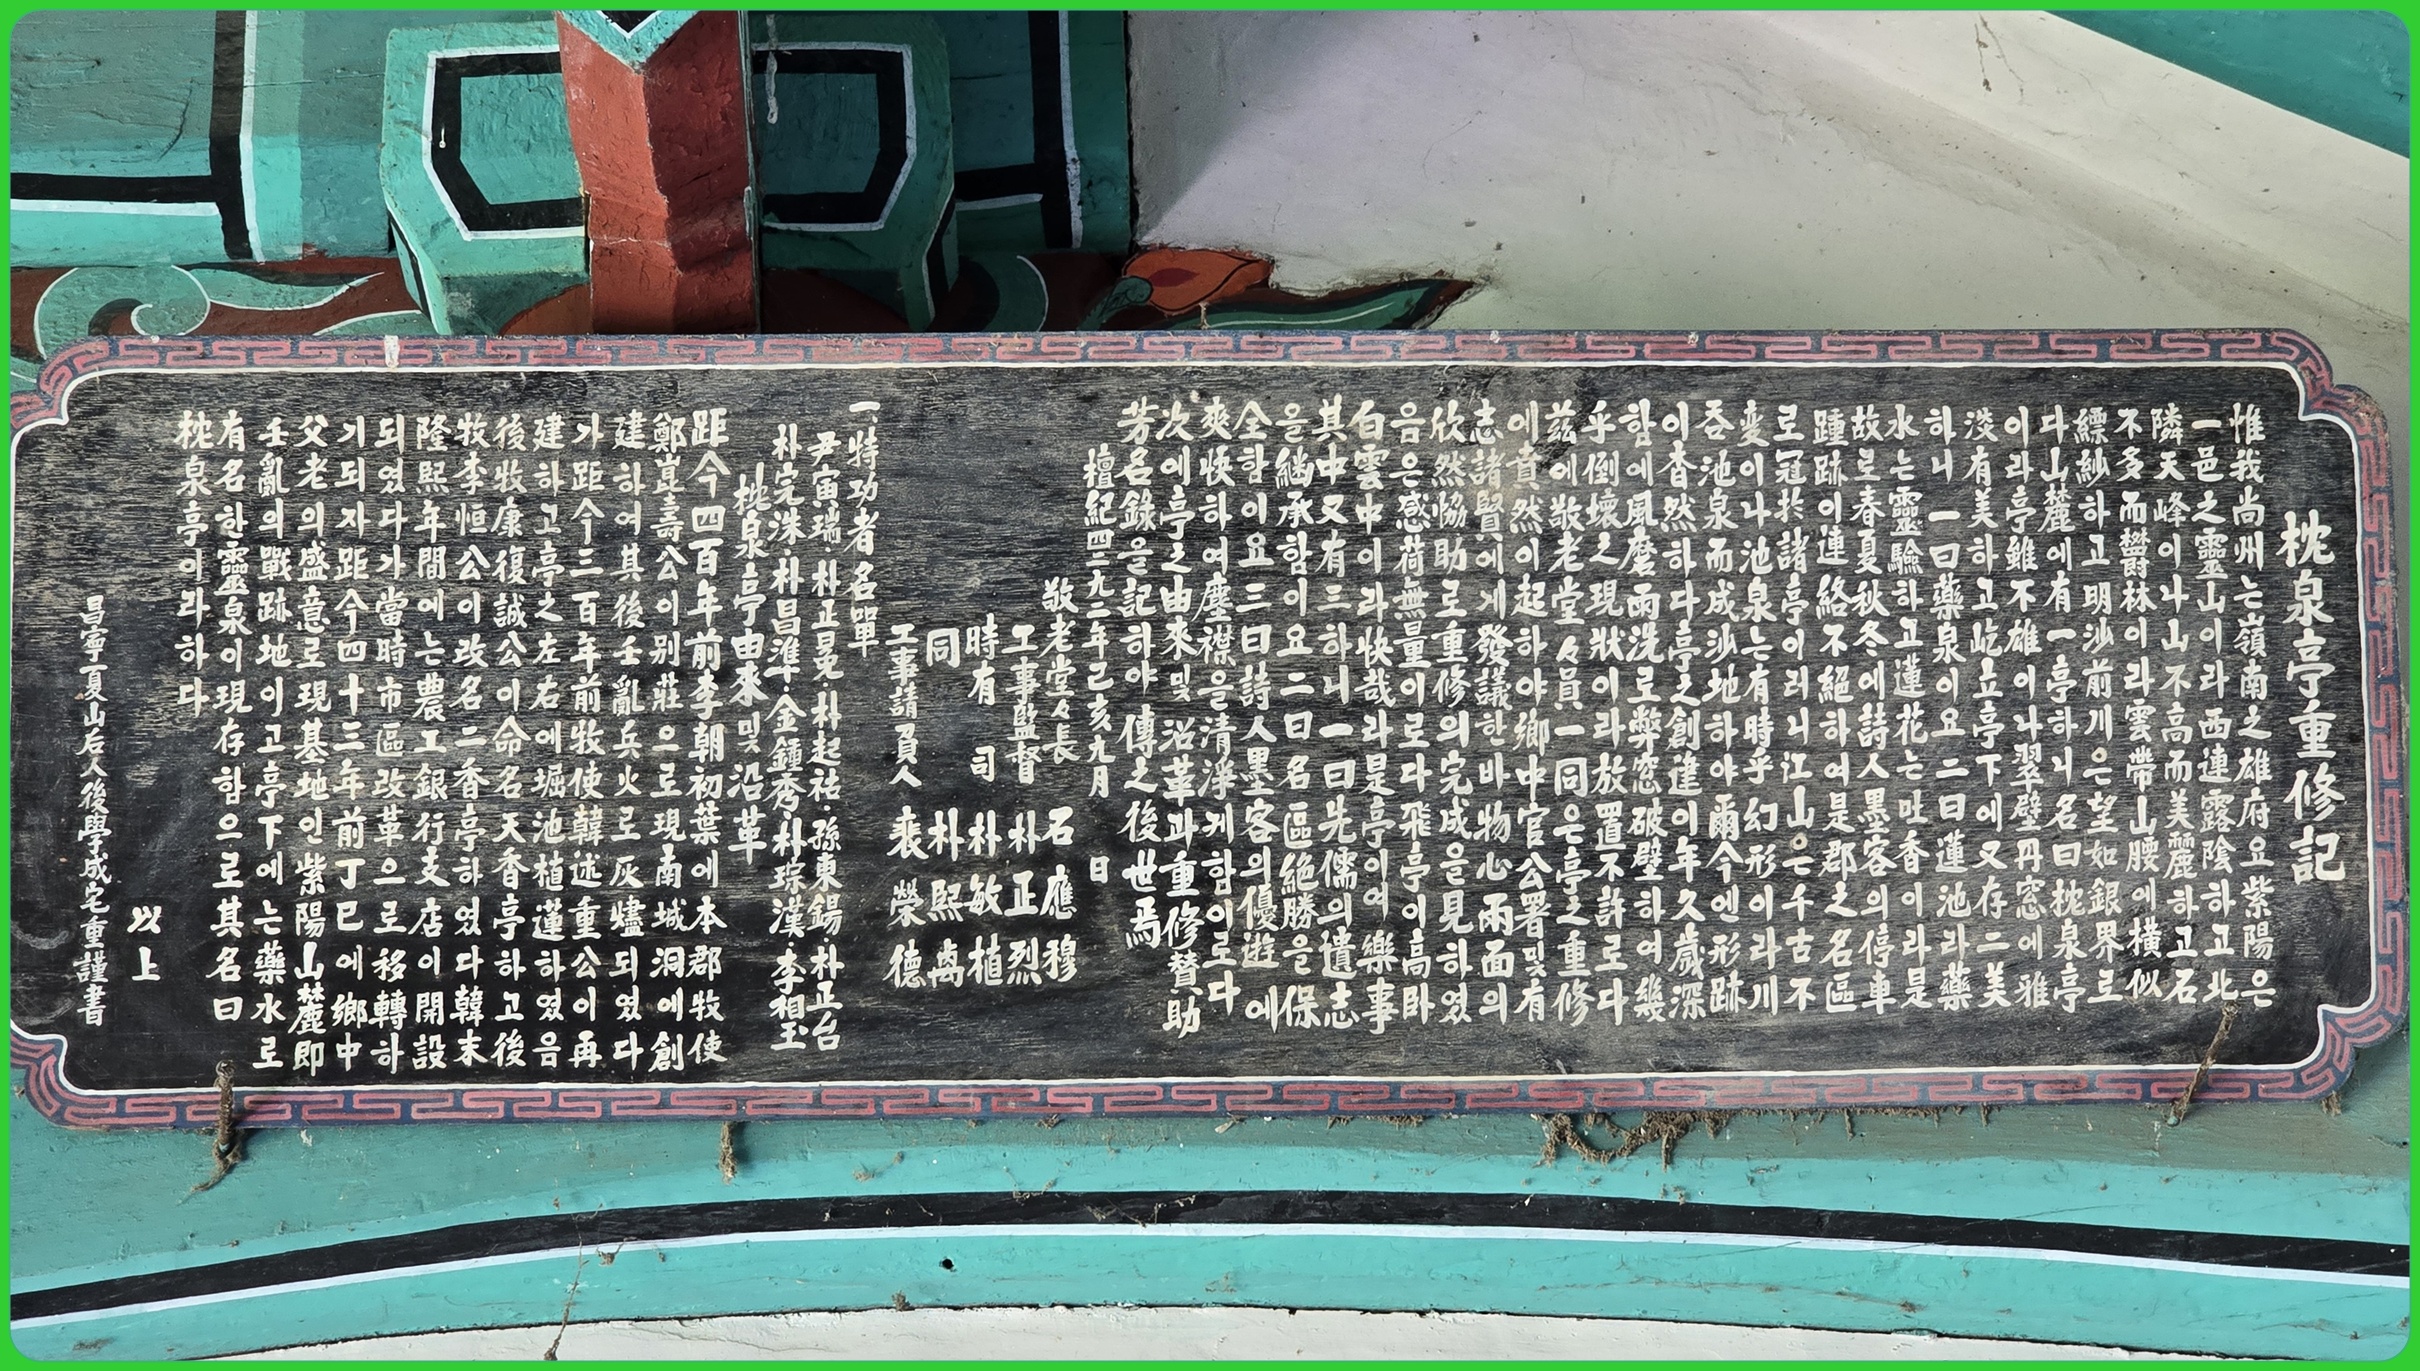 枕泉亭重修記
惟我尚州는嶺南之雄府요紫陽은
一邑之靈山이라西連露陰하고北
隣天峰이나山不高而美麗하고石
不多而欝林이라雲帶山腰에橫似
縹紗하고明沙前川은望如銀界로
다山麓에有一亭하니名曰枕泉亭
이라亭雖不雄이나翠壁丹窓에雅
淡有美하고屹立亭下에又存二美
하니一曰藥泉이요二曰蓮池라藥
水는靈驗하고蓮花는吐香이라是
故로春夏秋冬에詩人墨客의停車
踵跡이連絡不絕하여是郡之名區
로冠於諸亭이러니江山은千古不
変이나池泉는有時乎幻形이라川
吞池泉而成沙地하야爾今엔形跡
이杳然하다亭之創建이年久歲深
함에風磨雨洗로弊窓破壁하여幾
乎倒壞之現狀이라放置不許로다
茲에敬老堂々員一同은亭之重修
에賁然이起하야鄉中官公署및有
志諸賢에게發議한바物心兩面의
欣然協助로重修의完成을見하였
음은感荷無量이로다飛亭이高卧
白雲中이라快哉라是亭이여樂事
其中又有三하니一曰先儒의遺志
을繼承함이요二曰名區絶勝을保
全함이요三曰詩人墨客의優遊에
爽快하여塵襟을清淨케함이로다
次에亭之由來및沿革과重修贊助
芳名錄을記하야傳之後世焉
檀紀四二九二年己亥九月 日
敬老堂々長 石應穆
工事監督 朴正烈
時有司 朴敏植
同 朴熙
工事請負人 裵榮德
一.特功者名單
尹寅瑞·朴正冕·朴起祜·孫東錫·朴正台
朴完洙·朴昌準·金鍾秀·朴琮漢·李相玉
枕泉亭由來및沿革
距今四百年前李朝初葉에本郡牧使
鄭崑壽公이別莊으로現南城洞에創
建하여其後壬亂兵火로灰燼되였다
가距今三百年前牧使韓述重公이再
建하고亭之左右에堀池植蓮하였음
後牧康復誠公이命名天香亭하고後
牧李恒公이改名二香亭하였다韓末
隆熙年間에는農工銀行支店이開設
되였다가當時市區改革으로移轉하
기되자距今四十三年前丁巳에鄉中
父老의盛意로現基地인紫陽山麓即
壬亂의戰跡地이고亭下에는藥水로
有名한靈泉이現存함으로其名曰
枕泉亭이라하다
以上
昌寧夏山后人後學成宅重謹書